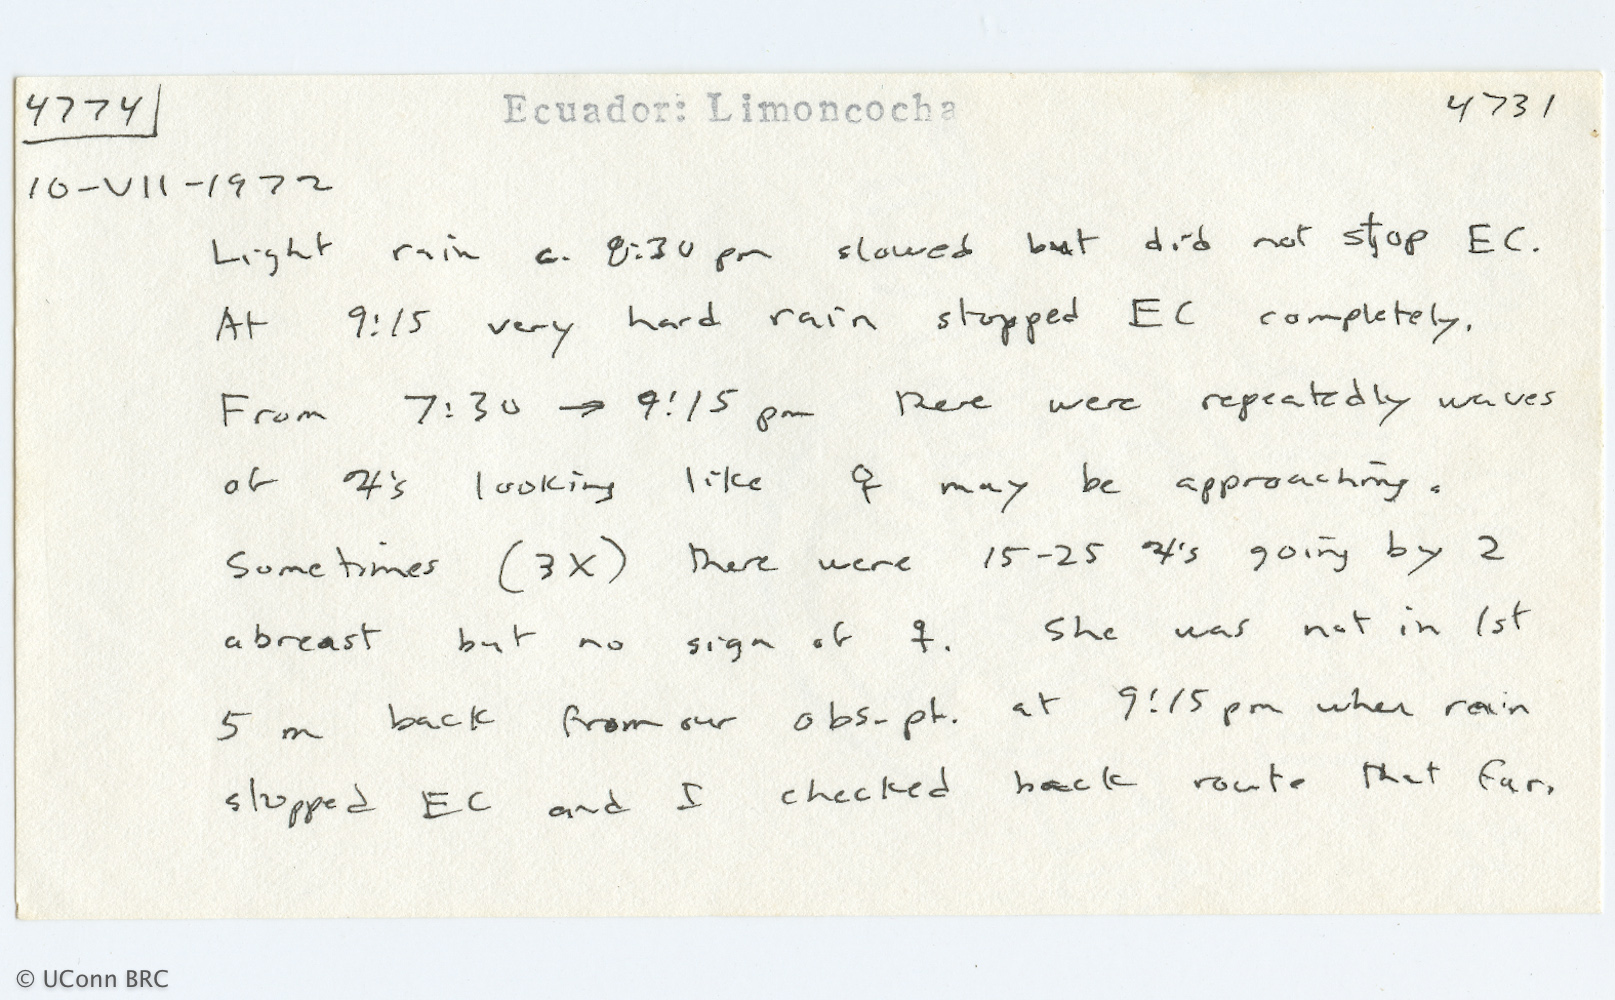 4774 Ecuador: Limoncocha 4731
10-VII-1972
Light rain c. 8:30 pm slowed but did not stop EC.
At 9:15 very hard rain stopped EC completely.
From 7:30 → 9:15 pm there were repeatedly waves
of ☿'s looking like ♀ may be approaching.
Sometimes (3X) there were 15-25 ☿'s going by 2
abreast but no sign of ♀. She was not in 1st
5 m back from our obs. pt. at 9:15 pm when rain
stopped EC and I checked back route that far.
© UConn BRC